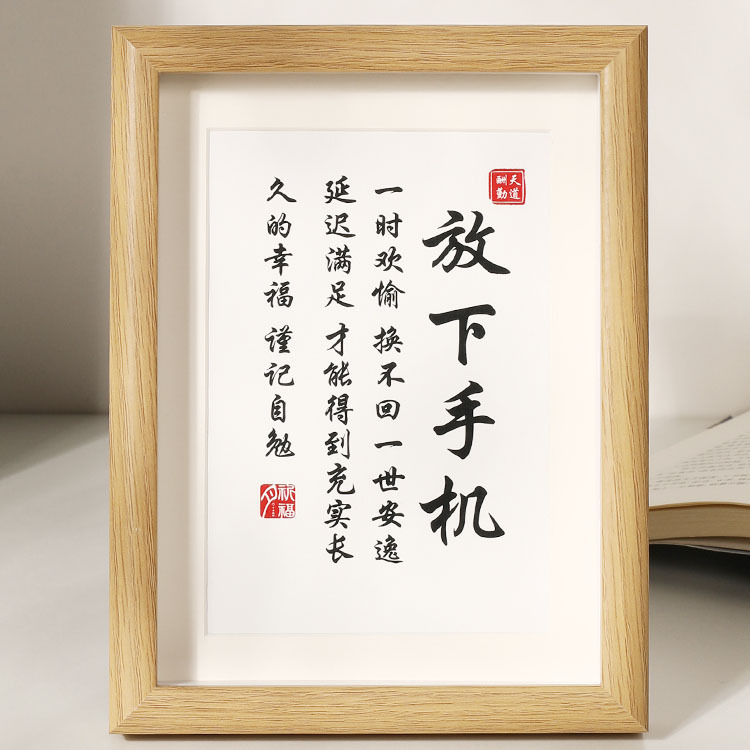 天道
酬勤
放下手机
一时欢愉 换不回一世安逸
延迟满足 才能得到充实长
久的幸福 谨记自勉
祈福